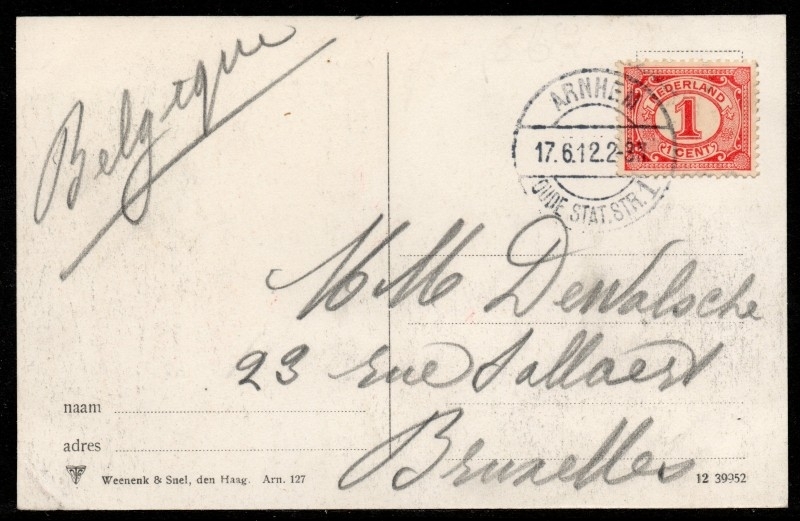 Belgique
ARNHEM
17.6.12.2-3
OUDE STAT.STR.1
NEDERLAND
1
1 CENT
MM Dewalsche
23 rue Sallaert
Bruxelles
naam
adres
Weenenk & Snel, den Haag. Arn. 127
12 39952